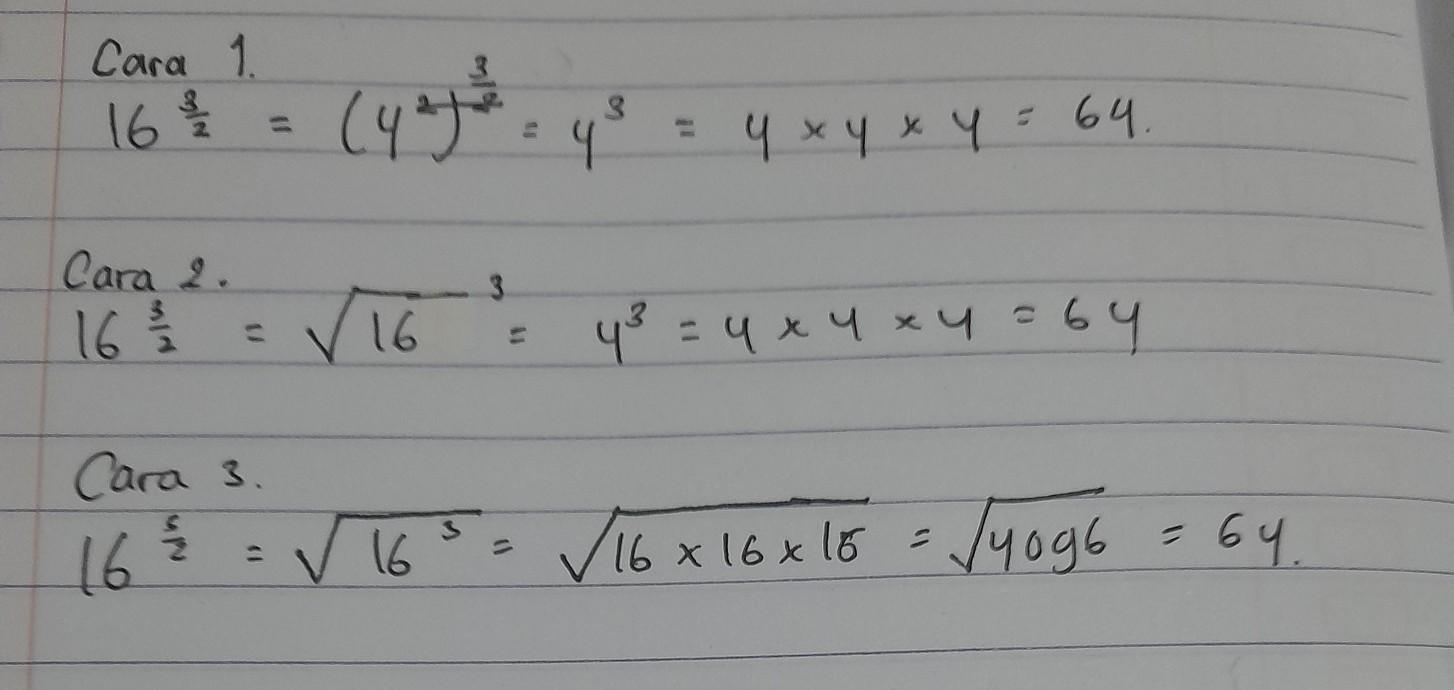 Cara 1.
16^(3/2) = (4^2)^(3/2) = 4^3 = 4 × 4 × 4 = 64.
Cara 2.
16^(3/2) = √16^3 = 4^3 = 4 × 4 × 4 = 64
Cara 3.
16^(3/2) = √(16^3) = √(16 × 16 × 16) = √4096 = 64.